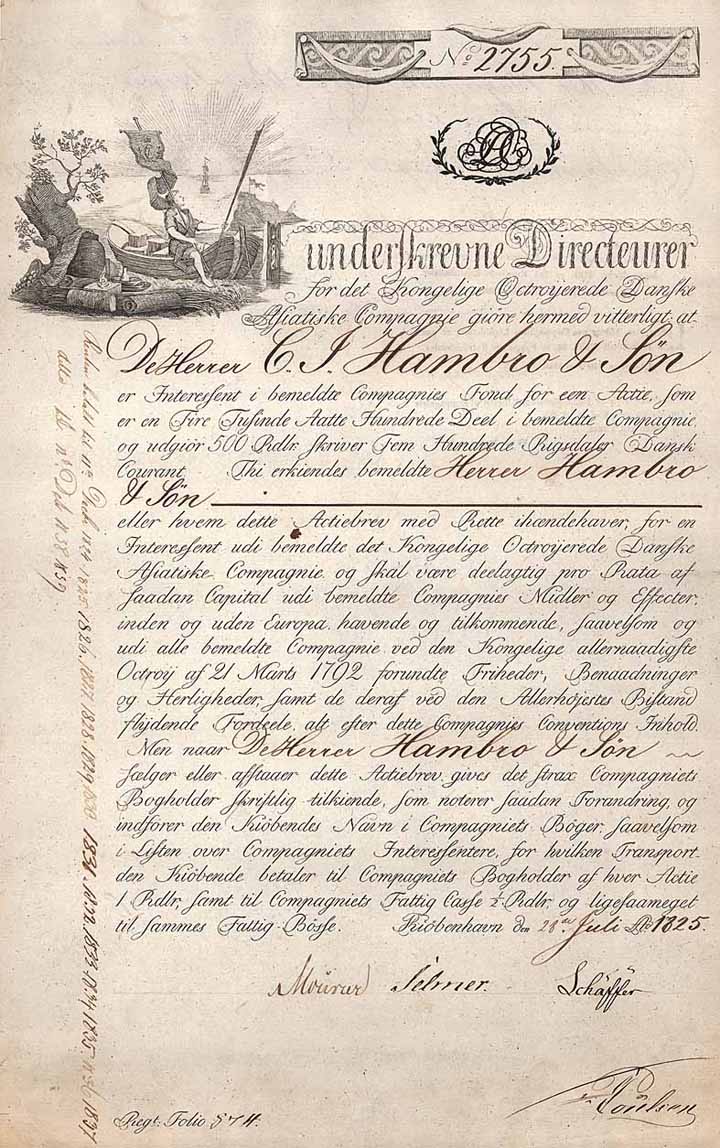 No. 2755
underskrevne Directeurer
for det Kongelige Octroyerede Danske
Asiatiske Compagnie giöre hermed vitterligt, at
De Herrer C. J. Hambro & Søn
er Interessent i bemeldte Compagnies Fond for een Actie, som
er en Fire Tusinde Aatte Hundrede Deel i bemeldte Compagnie,
og udgiör 500 Rdlr. skriver Fem Hundrede Rigsdaler Dansk
Courant. Thi erkiendes bemeldte Herrer Hambro
& Søn
eller hvem dette Actiebrev med Rette ihændehaver, for en
Interessent udi bemeldte det Kongelige Octroyerede Danske
Asiatiske Compagnie, og skal være deelagtig pro Rata af
saadan Capital udi bemeldte Compagnies Midler og Effecter,
inden og uden Europa, havende og tilkommende, saavelsom og
udi alle bemeldte Compagnie ved den Kongelige allernaadigste
Octroij af 21 Marts 1792 forundte Friheder, Benaadninger
og Herligheder, samt de deraf ved den Allerhöjestes Bistand
flydende Fordeele, alt efter dette Compagnies Conventions Inhold.
Men naar De Herrer Hambro & Søn
sælger eller afstaaer dette Actiebrev, gives det strax Compagniets
Bogholder skriftlig tilkiende, som noterer saadan Forandring, og
indförer den Kiöbendes Navn i Compagniets Böger, saavelsom
i Listen over Compagniets Interessentere, for hvilken Transport
den Kiöbende betaler til Compagniets Bogholder af hver Actie
1 Rdlr, samt til Compagniets Fattig Casse ½ Rdlr, og ligesaameget
til sammes Fattig-Bösse. Kiöbenhavn den 28de Juli Ao. 1825.
Selmer. Schäffer
Poulsen
Regt. Folio 874.
1825, 1826, 1827, 1828, 1829, 1830, 1831, 1832, 1833, 1834, 1835, 1836, 1837